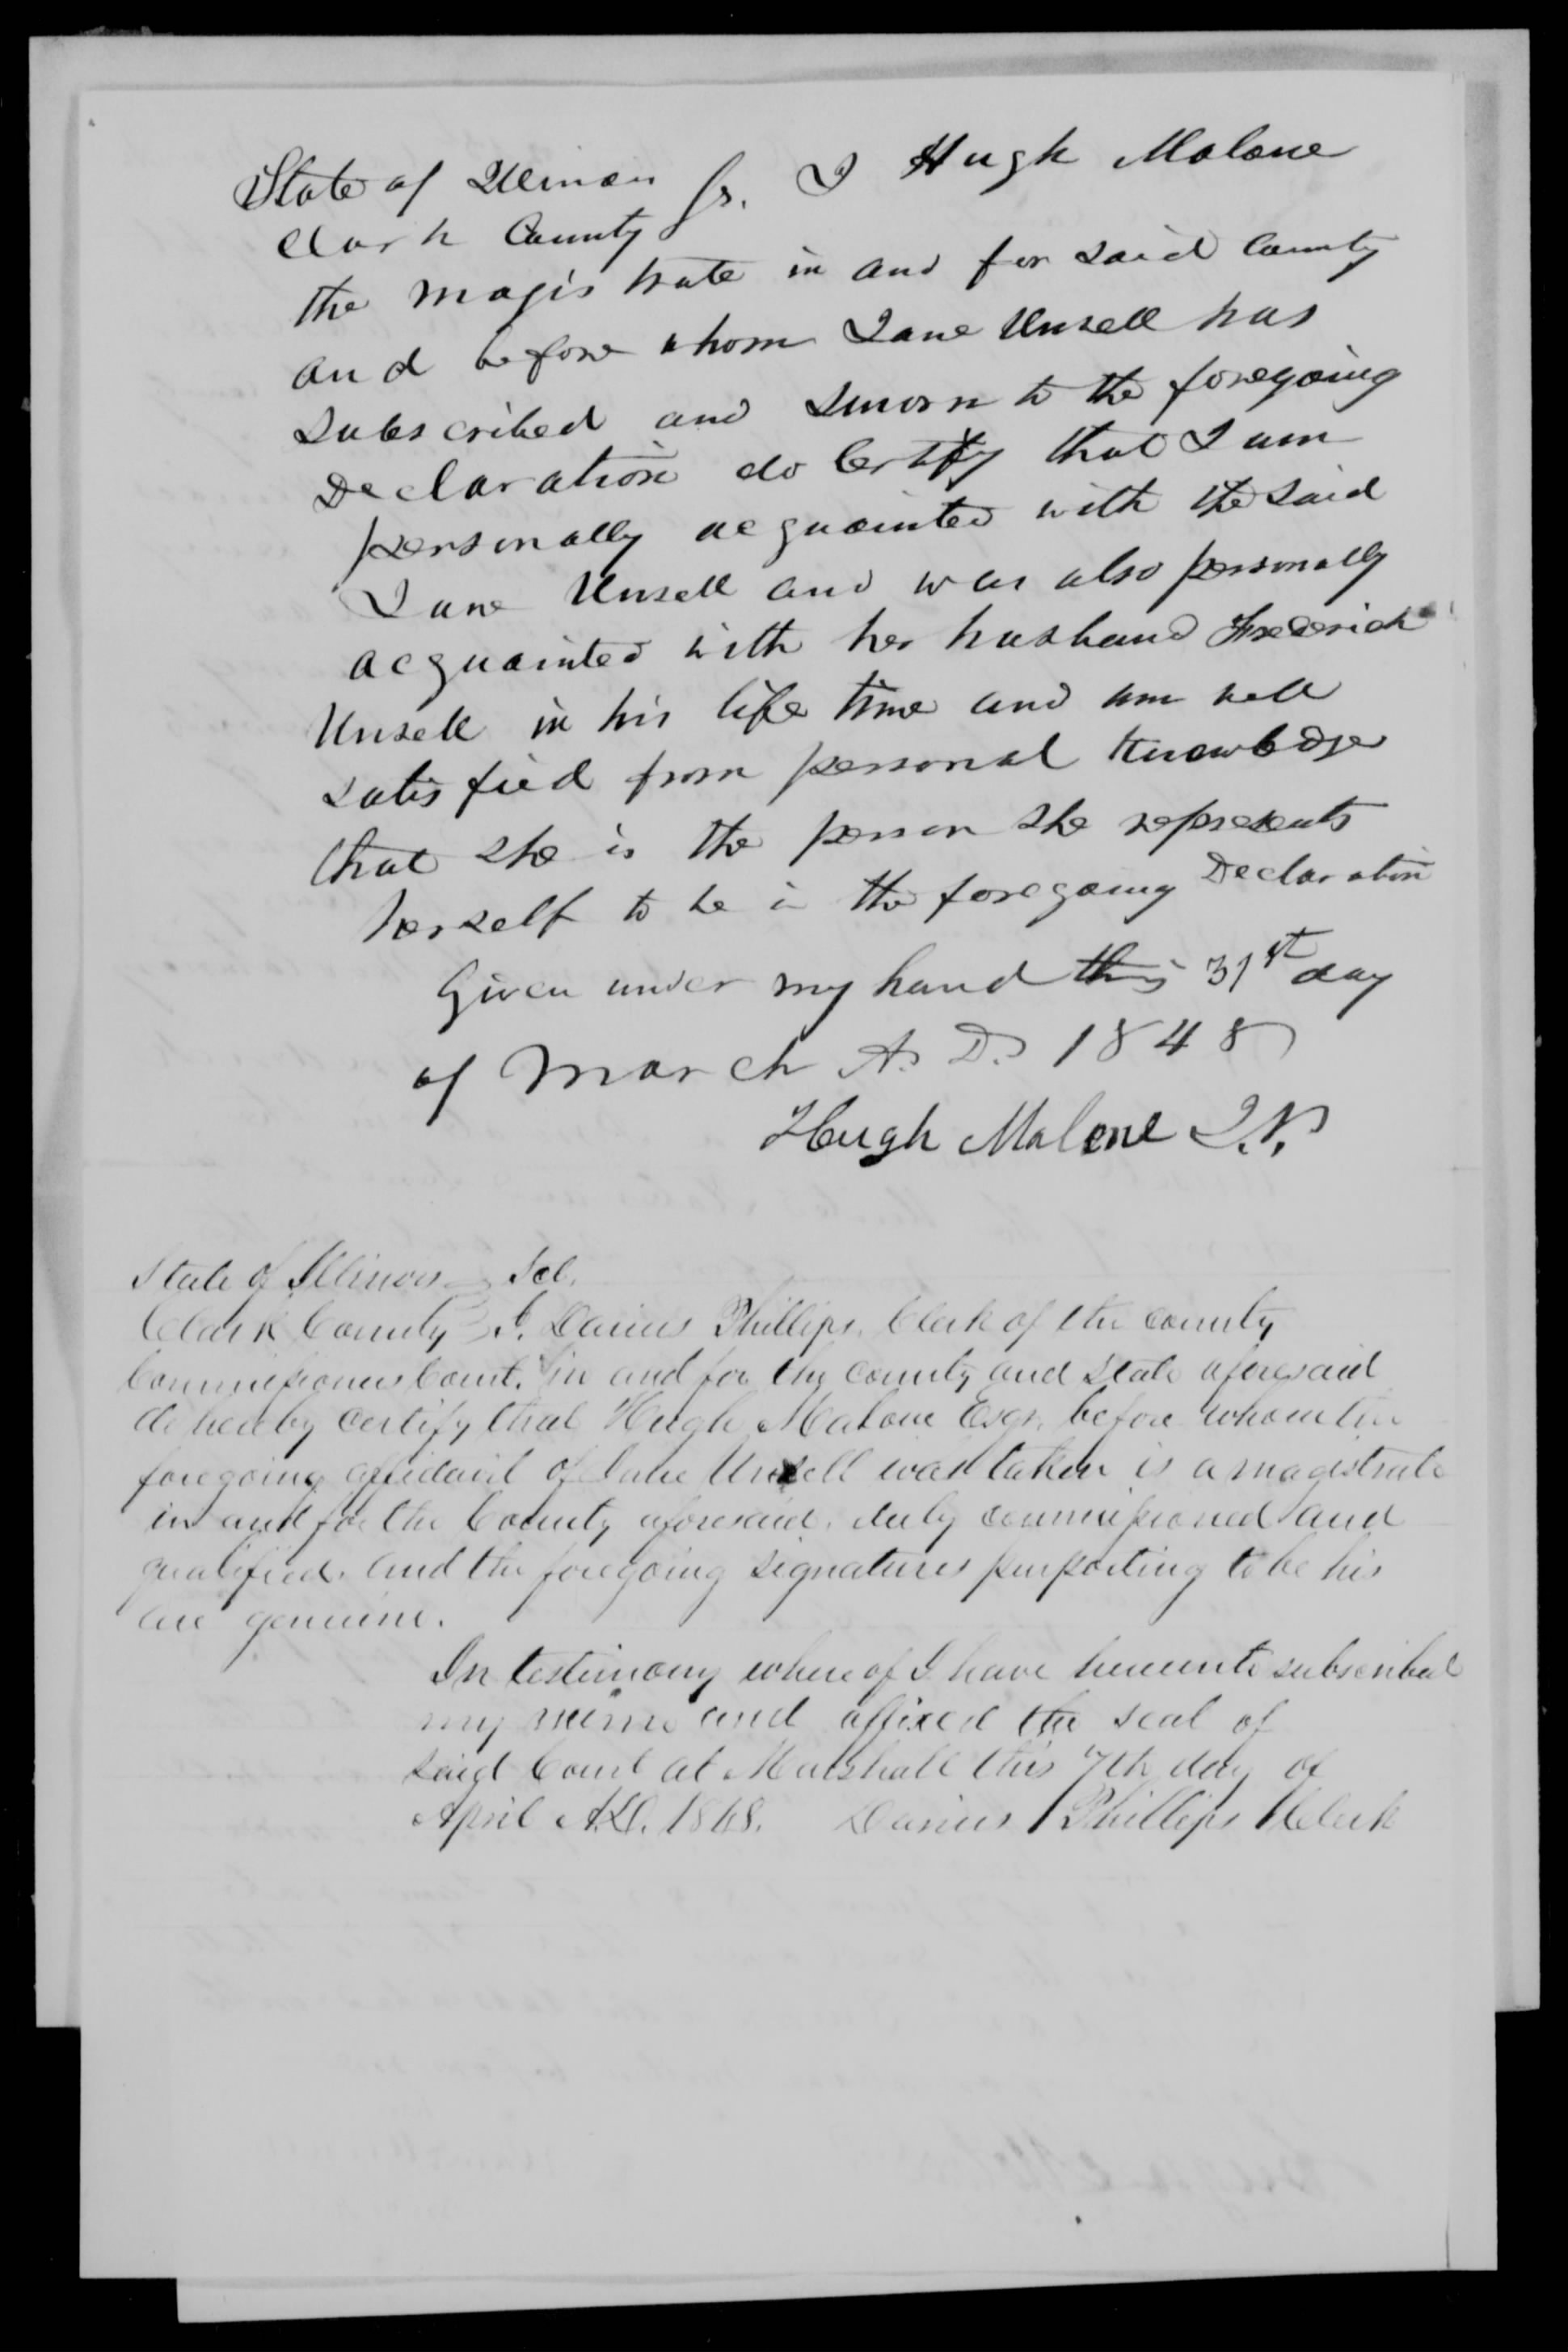 State of Illinois ss. I Hugh Malone
Clark County
the magistrate in and for said County
and before whom Jane Unsell has
subscribed and sworn to the foregoing
Declaration do Certify that I am
personally acquainted with the said
Jane Unsell and was also personally
acquainted with her husband Frederick
Unsell in his life time and am well
satisfied from personal knowledge
that she is the person she represents
herself to be in the foregoing Declaration
Given under my hand this 31st day
of March A. D. 1848
Hugh Malone J.P.
State of Illinois Scl.
Clark County I. Darius Phillips, Clerk of the County
Commissioners Court. in and for the County and State aforesaid
do hereby certify that Hugh Malone Esqr. before whom the
foregoing affidavit of Jane Unsell was taken is a magistrate
in and for the County aforesaid, duly commissioned and
qualified. and the foregoing signatures purporting to be his
are genuine.
In testimony where of I have hereunto subscribed
my name and affixed the seal of
said Court at Marshall this 7th day of
April A.D. 1848. Darius Phillips Clerk